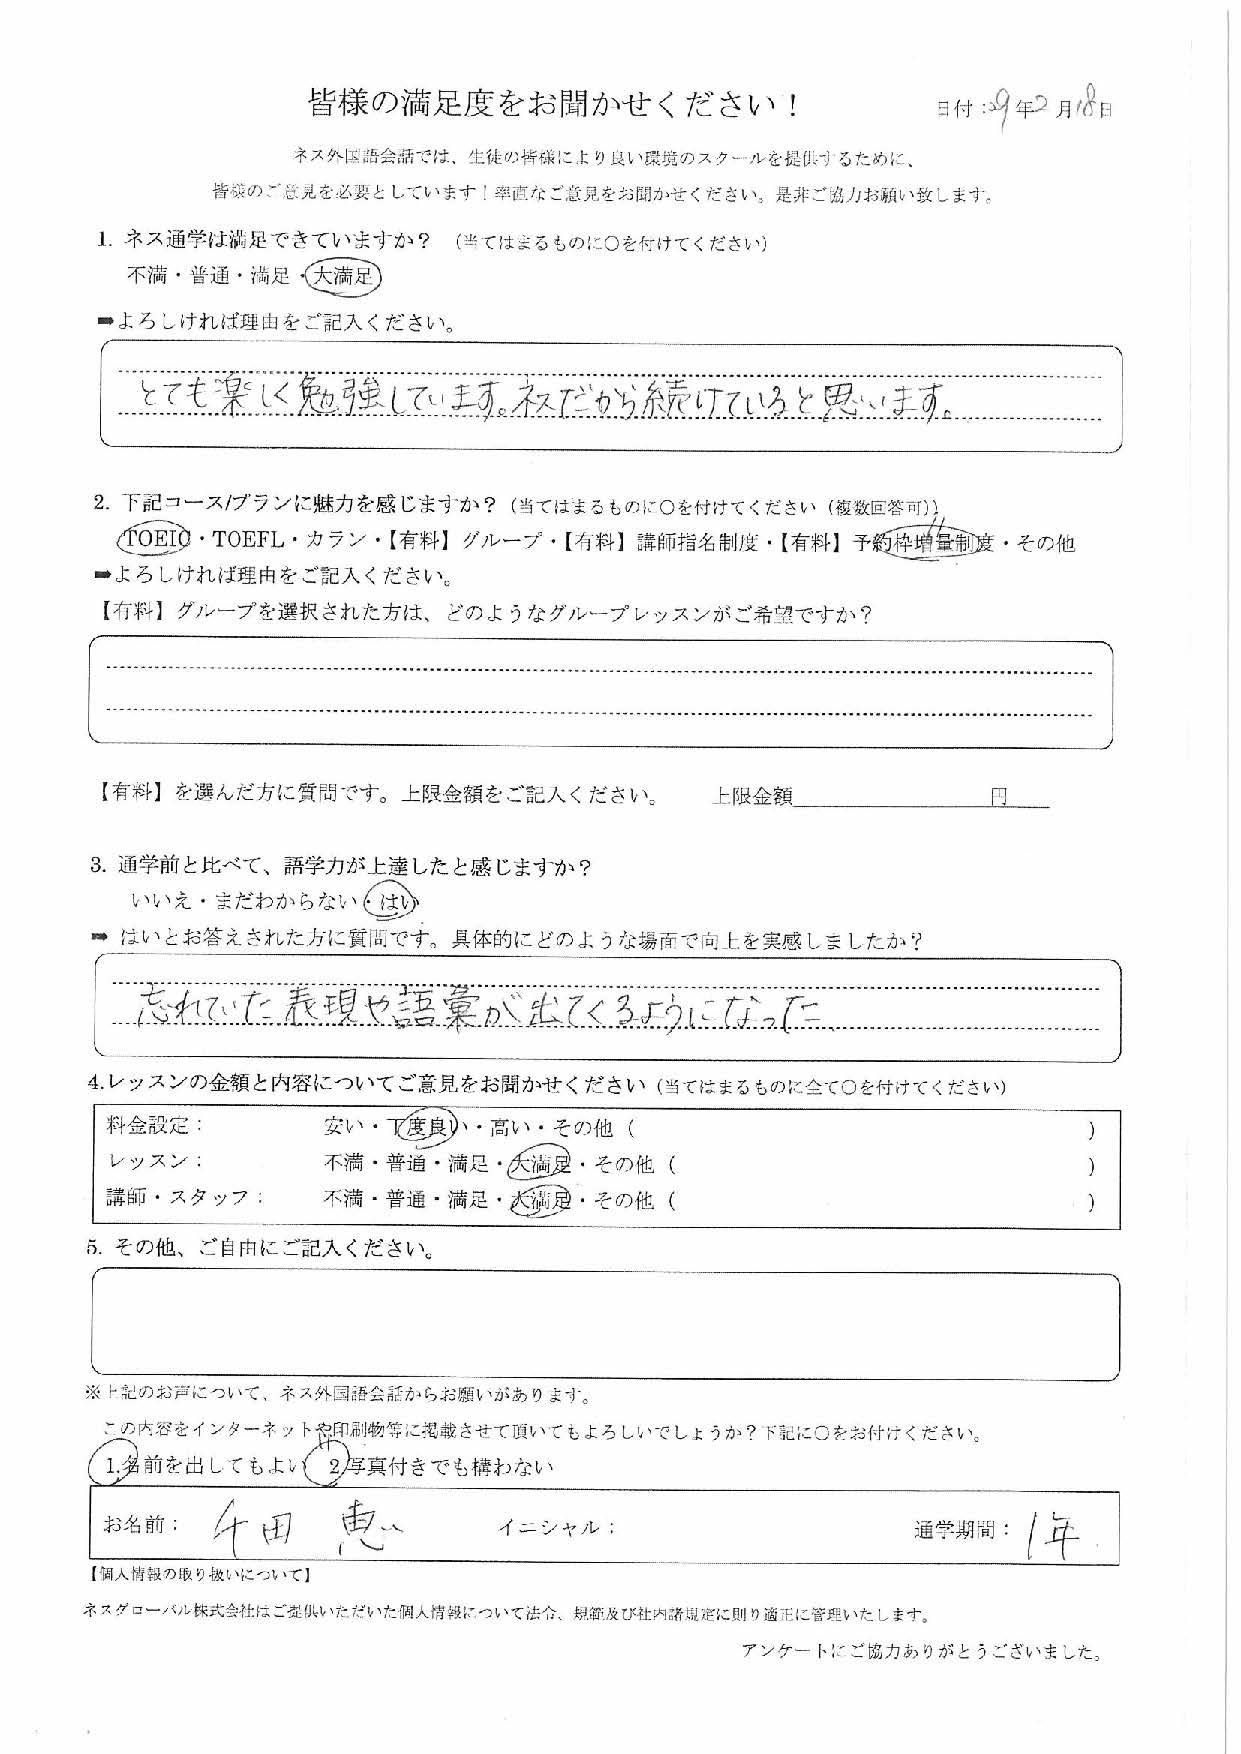 皆様の満足度をお聞かせください！
日付：29年2月18日
ネス外国語会話では、生徒の皆様により良い環境のスクールを提供するために、
皆様のご意見を必要としています！率直なご意見をお聞かせください。是非ご協力お願い致します。
1. ネス通学は満足できていますか？ （当てはまるものに〇を付けてください）
不満・普通・満足・大満足
➡よろしければ理由をご記入ください。
とても楽しく勉強しています。ネスだから続けていると思います。
2. 下記コース/プランに魅力を感じますか？（当てはまるものに〇を付けてください（複数回答可））
TOEIC・TOEFL・カラン・【有料】グループ・【有料】講師指名制度・【有料】予約枠増量制度・その他
➡よろしければ理由をご記入ください。
【有料】グループを選択された方は、どのようなグループレッスンがご希望ですか？
【有料】を選んだ方に質問です。上限金額をご記入ください。 上限金額 円
3. 通学前と比べて、語学力が上達したと感じますか？
いいえ・まだわからない・はい
➡ はいとお答えされた方に質問です。具体的にどのような場面で向上を実感しましたか？
忘れていた表現や語彙が出てくるようになった
4.レッスンの金額と内容についてご意見をお聞かせください（当てはまるものに全て〇を付けてください）
料金設定： 安い・丁度良い・高い・その他（ ）
レッスン： 不満・普通・満足・大満足・その他（ ）
講師・スタッフ： 不満・普通・満足・大満足・その他（ ）
5. その他、ご自由にご記入ください。
※上記のお声について、ネス外国語会話からお願いがあります。
この内容をインターネットや印刷物等に掲載させて頂いてもよろしいでしょうか？下記に〇をお付けください。
1.名前を出してもよい 2.写真付きでも構わない
お名前： 千田 恵 イニシャル： 通学期間：1年
【個人情報の取り扱いについて】
ネスグローバル株式会社はご提供いただいた個人情報について法令、規範及び社内諸規定に則り適正に管理いたします。
アンケートにご協力ありがとうございました。